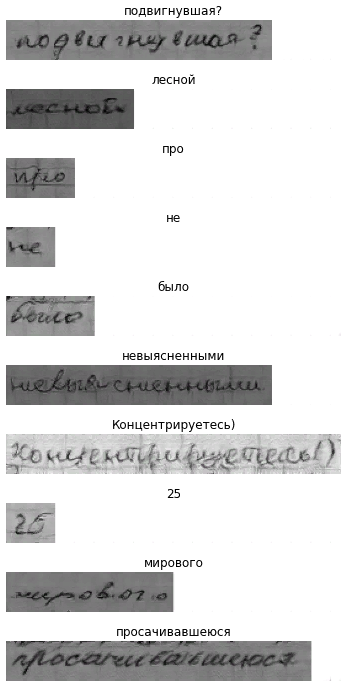 подвигнувшая?
подвигнувшая?
лесной
лесной
про
про
не
не
было
было
невыясненными
невыясненными
Концентрируетесь)
Концентрируетесь!)
25
25
мирового
мирового
просачивавшеюся
просачивавшеюся